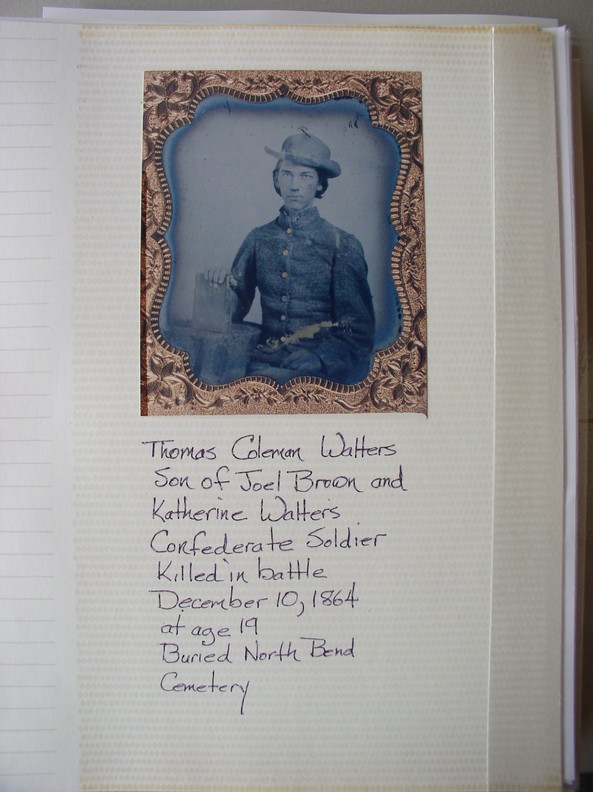 Thomas Coleman Walters
Son of Joel Broon and
Katherine Walters
Confederate Soldier
Killed in battle
December 10, 1864
at age 19
Buried North Bend
Cemetery